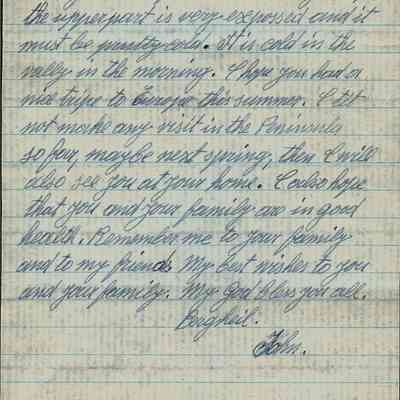 the upper part is very expossed and it
must be pretty cold. It is cold in the
vally in the morning. I hope you had a
nice tripe to Europe this summer. I tit
not make any visit in the Peninsula
so far, maybe next spring, then I will
also see you at your home. I also hope
that you and your family are in good
health. Remember me to your family
and to my friends. My best wishes to you
and your family. My God bless you all.
Bergheil.
John.